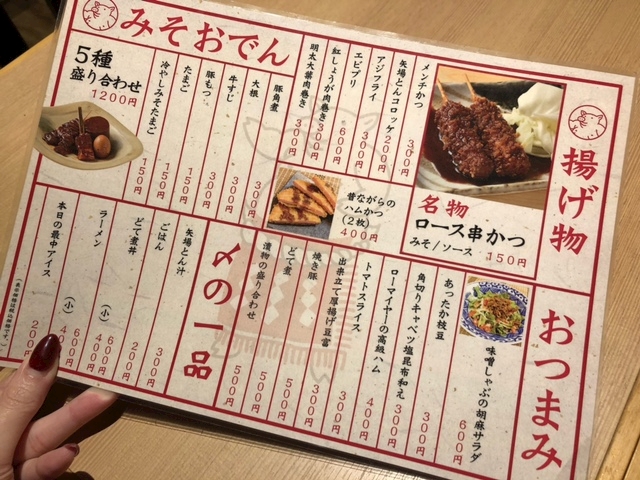 揚げ物
名物
ロース串かつ
みそ/ソース 150円
メンチかつ 300円
矢場とんコロッケ 200円
アジフライ 300円
エビプリ 600円
紅しょうが肉巻き 300円
明太大葉肉巻き 300円
昔ながらの
ハムかつ
(2枚)
400円
みそおでん
5種
盛り合わせ
1200円
豚角煮 300円
大根 300円
牛すじ 300円
豚もつ 150円
たまご 150円
冷やしみそたまご 150円
おつまみ
味噌しゃぶの胡麻サラダ 600円
あったか枝豆 300円
角切りキャベツ塩昆布和え 300円
ローマイヤーの高級ハム 400円
トマトスライス 300円
出来立て厚揚げ豆富 300円
焼き豚 500円
どて煮 500円
漬物の盛り合わせ 500円
〆の一品
矢場とん汁 300円
ごはん 200円
どて煮丼 600円
(小) 400円
ラーメン 600円
(小) 400円
本日の最中アイス 200円